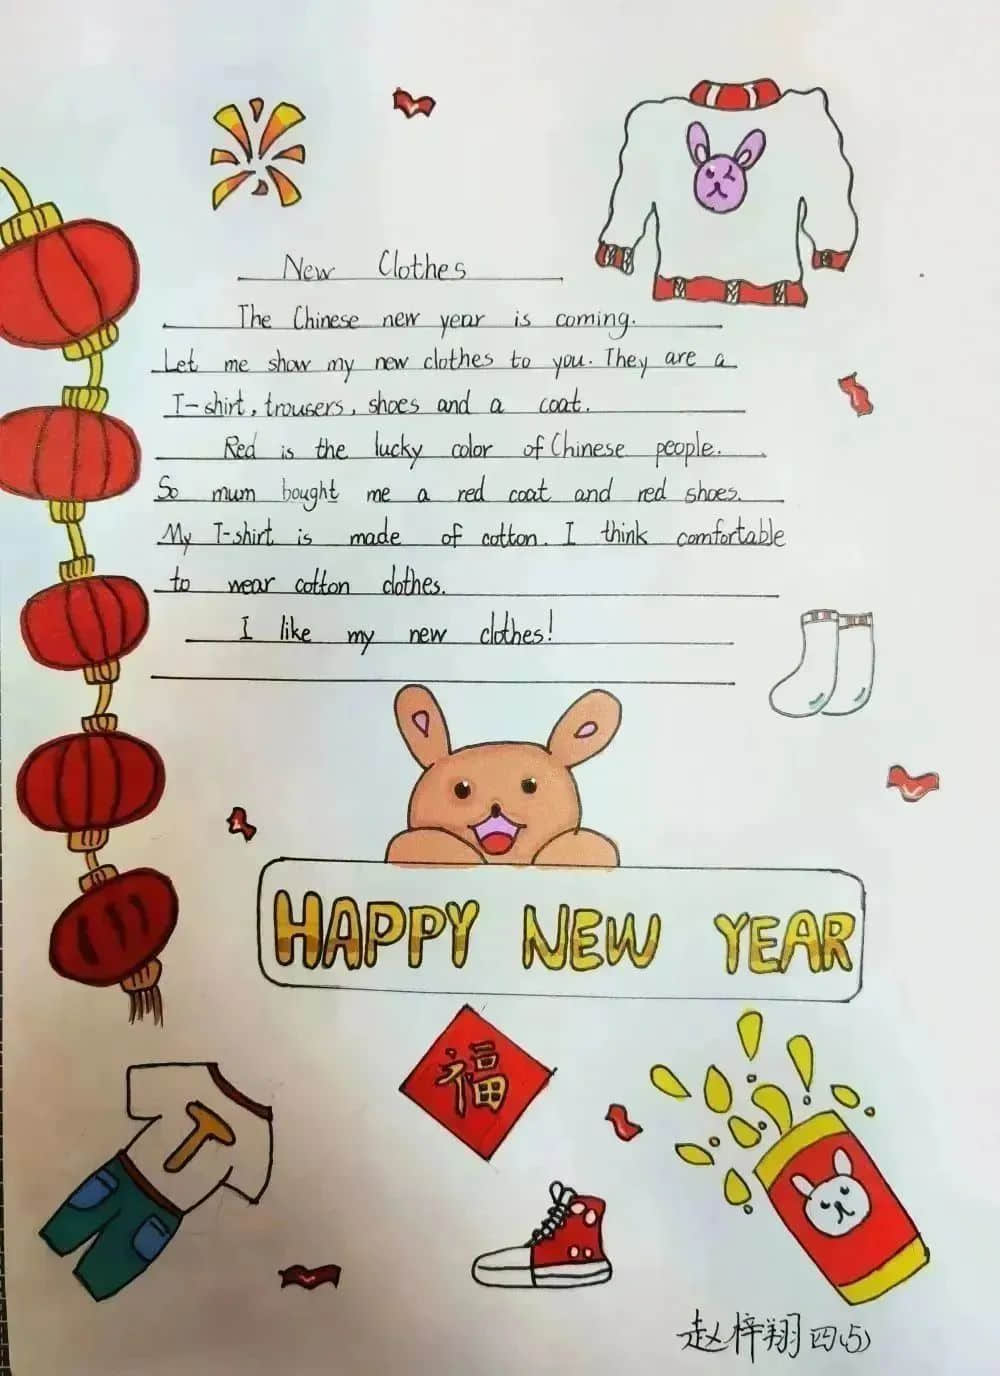 New Clothes
The Chinese new year is coming.
Let me show my new clothes to you. They are a
T-shirt, trousers, shoes and a coat.
Red is the lucky color of Chinese people.
So mum bought me a red coat and red shoes.
My T-shirt is made of cotton. I think comfortable
to wear cotton clothes.
I like my new clothes!
HAPPY NEW YEAR
福
T
赵梓翔四(5)